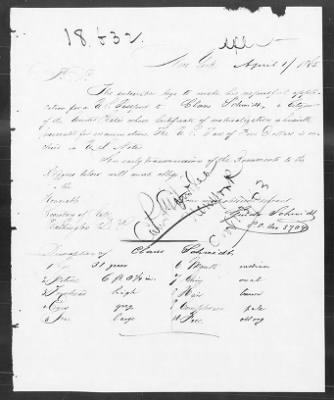 18.632.
New York April 3/1865
The subscriber begs to make his respectful appli-
cation for a U.S. Passport to Claus Schmidt, a citizen
of the United States whose certificate of naturalization is herewith
The U.S. Tax of Five Dollars is in-
closed in U.S. Notes
An early transmission of the documents to the
address below will much oblige
To the
Honorable
Secretary of State
Washington D.C.
Schmidt
P.O. Box 3709
New York
Description of Claus Schmidt.
1 Age 31 years 6 Mouth medium
2 Stature 5 ft 8½ in 7 Chin oval
3 Forehead high 8 Hair brown
4 Eyes gray 9 Complexion pale
5 Nose large 10 Face oblong